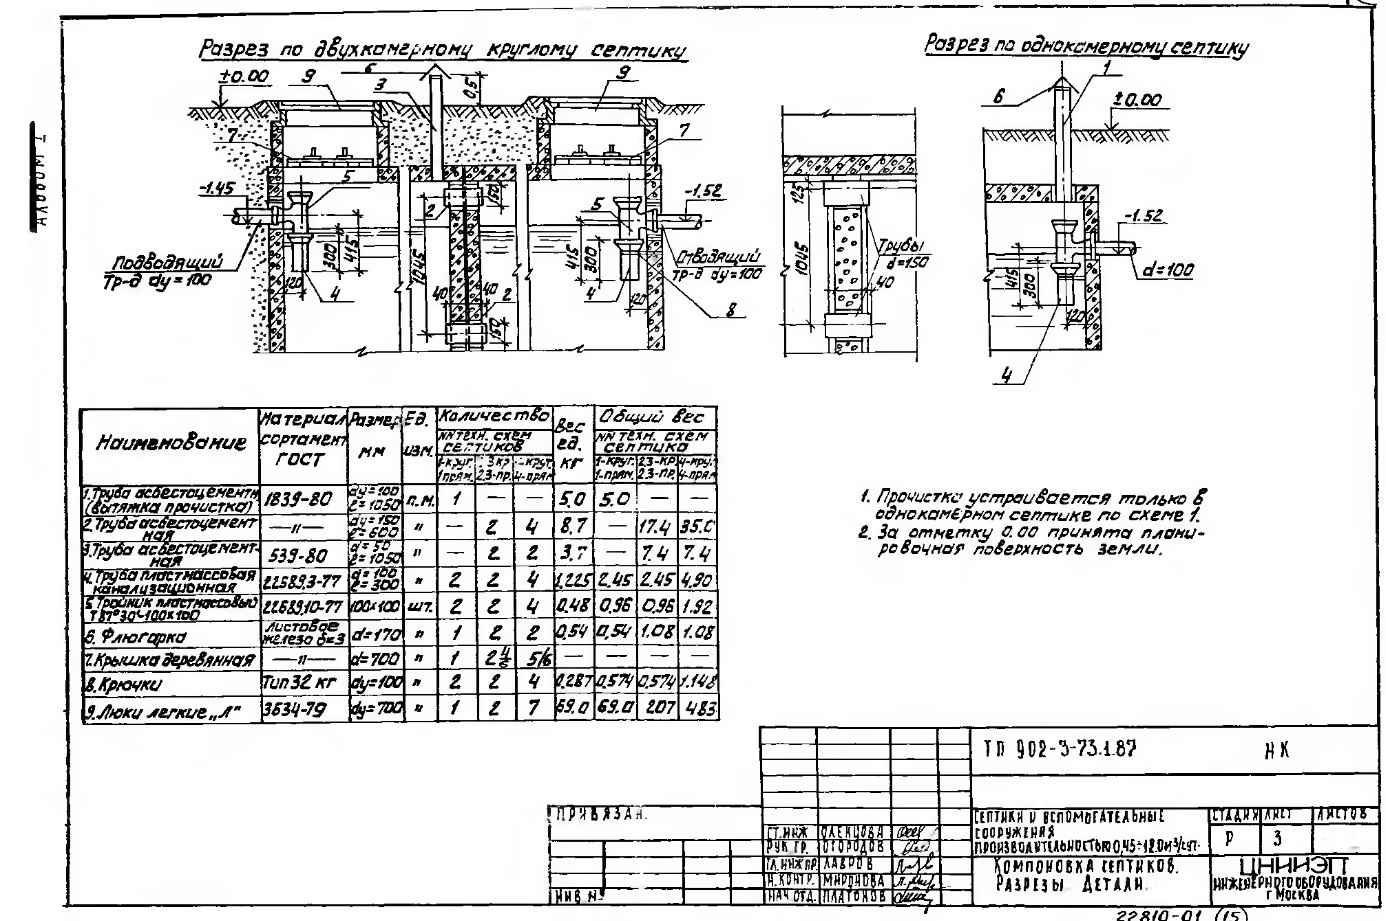 Альбом I
Разрез по двухкамерному круглому септику
Разрез по однокамерному септику
±0.00
9
6
3
0.5
9
7
7
-1.45
5
2
150
5
-1.52
Подводящий
Тр-д dу=100
300
415
120
4
1045
40
40
2
150
415
300
4
120
Отводящий
тр-д dу=100
8
125
1045
Трубы
d=150
40
6
1
±0.00
-1.52
d=100
415
300
120
4
Наименование | Материал сортамент ГОСТ | Размер мм | Ед. изм. | Количество | Вес ед. кг | Общий вес
NN техн. схем септиков | NN техн. схем септика
1-круг. 1прям. | 3кр 2,3-пр. | 4-круг. 4-прям | 1-круг. 1-прям. | 2,3-кр 2,3-пр. | 4-кру. 4-прям
1. Труба асбестоцементн (вытяжка прочистка) | 1839-80 | dу=100 ℓ=1050 | п.м. | 1 | — | — | 5.0 | 5.0 | — | —
2. Труба асбестоцемент ная | —"— | dу=150 ℓ=600 | " | — | 2 | 4 | 8.7 | — | 17.4 | 35.0
3. Труба асбестоцемент-ная | 539-80 | d=50 ℓ=1050 | " | — | 2 | 2 | 3.7 | — | 7.4 | 7.4
4. Труба пластмассовая канализационная | 22689.3-77 | d=100 ℓ=300 | " | 2 | 2 | 4 | 1.225 | 2.45 | 2.45 | 4.90
5. Тройник пластмассовый Т87°30'-100х100 | 22689.10-77 | 100х100 | шт. | 2 | 2 | 4 | 0.48 | 0,96 | 0,96 | 1.92
6. Флюгарка | Листовое железо δ=3 | d=170 | " | 1 | 2 | 2 | 0,54 | 0,54 | 1.08 | 1.08
7. Крышка деревянная | —"— | d=700 | " | 1 | 2 | 5/6 | — | — | — | —
8. Крючки | Тип 32 кг | dу=100 | " | 2 | 2 | 4 | 0.287 | 0,574 | 0,574 | 1.148
9. Люки легкие „Л" | 3634-79 | dу=700 | " | 1 | 2 | 7 | 69.0 | 69.0 | 207 | 483
1. Прочистка устраивается только в
однокамерном септике по схеме 1.
2. За отметку 0.00 принята плани-
ровочная поверхность земли.
ТП 902-3-73.1.87 НК
Привязан:
Инв.№
Ст.инж Оленцова
Рук.гр. Огородов
Гл.инж.пр Лавров
Н.контр. Миронова
Нач.отд. Платонов
Септики и вспомогательные
сооружения
производительностью 0,45÷12.0м³/сут.
Компоновка септиков.
Разрезы Детали.
Стадия Лист Листов
Р 3
ЦНИИЭП
инженерного оборудования
г Москва
22810-01 (15)